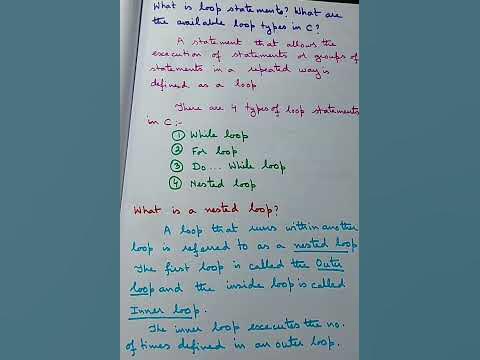 What is loop statements? What are
the available loop types in C?
A statement that allows the
execution of statements or groups of
statements in a repeated way is
defined as a loop
There are 4 types of loop statements
in C:-
① While loop
② For loop
③ Do... While loop
④ Nested loop
What is a nested loop?
A loop that runs within another
loop is referred to as a nested loop
The first loop is called the Outer
loop and the inside loop is called
Inner loop.
The inner loop executes the no.
of times defined in an outer loop.